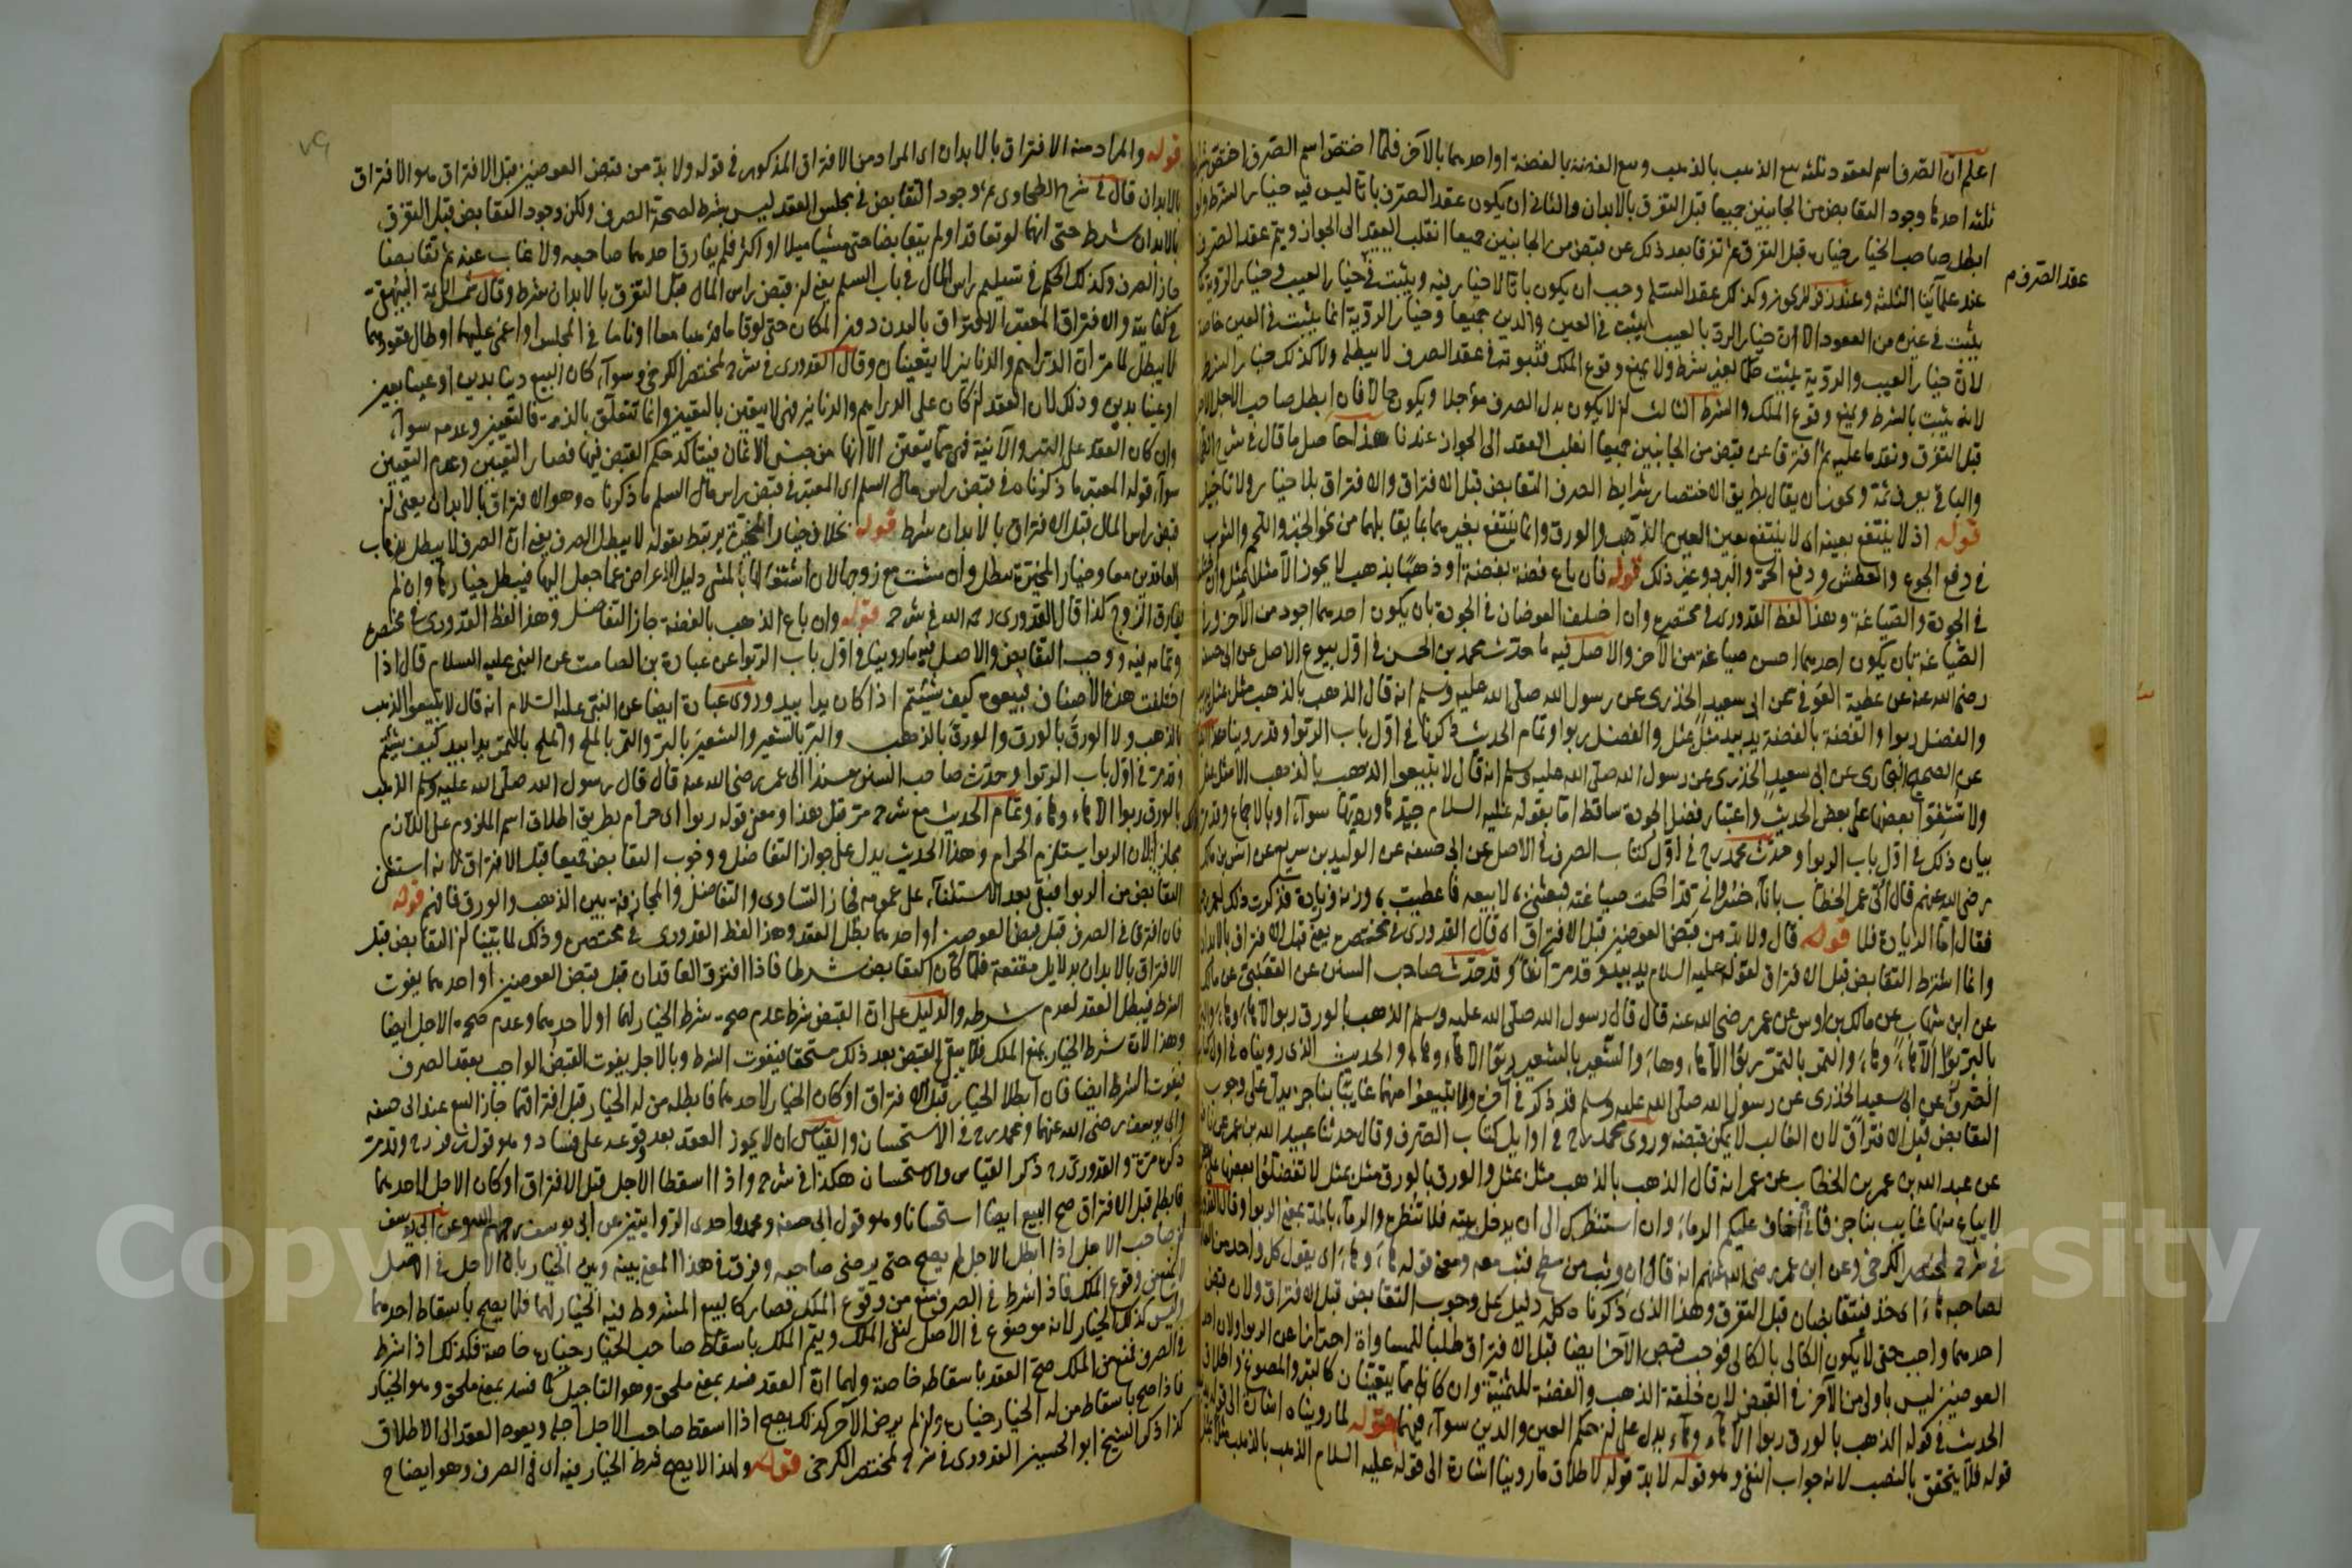 اعلم ان الصرف اسم لعقود ثلثة بيع الذهب بالذهب وبيع الفضة بالفضة او احدهما بالآخر فلما اختص اسم الصرف اختص
ثلثة احدها وجود التقابض من الجانبين جميعا قبل التفرق بالابدان والثاني ان يكون عقد الصرف باتا ليس فيه خيار الشرط
ابطل صاحب الخيار خياره قبل التفرق ثم تفرقا بعد ذلك عن قبض من الجانبين جميعا انقلب العقد الى الجواز ويتم عقد الصرف
عقد الصرف م
عند علمائنا الثلثة وعند زفر لا يجوز وكذلك عقد السلم وجب ان يكون باتا لا خيار فيه ويثبت فيه خيار العيب وخيار الرؤية
يثبت في غيره من العقود الا ان خيار الرد بالعيب يثبت في العين والدين جميعا وخيار الرؤية انما يثبت في العين خاصة
لان خيار العيب والرؤية يثبت حكما لغير شرط ولا يمنع وقوع الملك فثبوته في عقد الصرف لا يبطله ولا كذلك خيار الشرط
لانه يثبت بالشرط ويمنع وقوع الملك والشرط الثالث ان لا يكون بدل الصرف مؤجلا ويكون حالا فان ابطل صاحب الاجل الاجل
قبل التفرق ونقد ما عليه ثم افترقا عن قبض من الجانبين جميعا انقلب العقد الى الجواز عندنا هذا حاصل ما قال في شرح
والباقي يعرف ثمة ويجوز ان يقال بطريق الاختصار شرايط الصرف التقابض قبل الافتراق والافتراق بلا خيار ولا تاجيل
قوله اذ لا ينتفع بعينه اي لا ينتفع بعين العين الذهب والورق وانما ينتفع بغيرهما بما يقابلهما من نحو الخبز واللحم والثوب
في دفع الجوع والعطش ودفع الحر والبرد وغير ذلك قوله فان باع فضة بفضة او ذهبا بذهب لا يجوز الا مثلا بمثل وان
في الجودة والصياغة وهذا لفظ القدوري في مختصره وان اختلف العوضان في الجودة بان يكون احدهما اجود من الآخر
الصياغة بان يكون احدهما احسن صياغة من الآخر والاصل فيه ما حدث محمد بن الحسن في اول بيوع الاصل عن ابي حنيفة
رضي الله عنه عن عطية العوفي عن ابي سعيد الخدري عن رسول الله صلى الله عليه وسلم انه قال الذهب بالذهب مثل بمثل
والفضل ربوا والفضة بالفضة يد بيد مثل بمثل والفضل ربوا وتمام الحديث ذكرنا في اول باب الربوا وقد روينا
عن الصحيح البخاري عن ابي سعيد الخدري عن رسول الله صلى الله عليه وسلم انه قال لا تبيعوا الذهب بالذهب الا مثل بمثل
ولا تشفوا بعضها على بعض الحديث واعتبار فضل الجودة ساقط اما بقوله عليه السلام جيدها ورديئها سواء او بالاجماع وقد مر
بيان ذلك في اول باب الربوا وحدث محمد رح في اول كتاب الصرف في الاصل عن ابي حنيفة عن الوليد بن سريع عن انس بن مالك
رضي الله عنهم قال اتى عمر الخطاب باناء خسرواني قد احكمت صياغته فبعثني لابيعه فاعطيت به وزنه وزيادة فذكرت ذلك لعمر
فقال اما الزيادة فلا قوله قال ولا بد من قبض العوضين قبل الافتراق اي قال القدوري في مختصره يعني قبل الافتراق بالابدان
وانما اشترط التقابض قبل الافتراق لقوله عليه السلام يد بيد وقد مر آنفا وقد حدث صاحب السنن عن القعنبي عن مالك
عن ابن شهاب عن مالك بن اوس عن عمر رضي الله عنه قال قال رسول الله صلى الله عليه وسلم الذهب بالورق ربوا الا هاء وهاء
بالبر ربوا الا هاء وهاء والتمر بالتمر ربوا الا هاء وهاء والشعير بالشعير ربوا الا هاء وهاء والحديث الذي رويناه في اول
الصرف عن ابي سعيد الخدري عن رسول الله صلى الله عليه وسلم قد ذكر في آخره ولا تبيعوا منها غايبا بناجز يدل على وجوب
التقابض قبل الافتراق لان الغايب لا يمكن قبضه وروى محمد رح في اوايل كتاب الصرف وقال حدثنا عبيد الله بن عمر عن نافع
عن عبد الله بن عمر بن الخطاب عن عمر انه قال الذهب بالذهب مثل بمثل والورق بالورق مثل بمثل لا تفضلوا بعضها على
لا يباع منها غايب بناجز فاني اخاف عليكم الرماء وان استنظرك الى ان يدخل بيته فلا تنظره والرماء بالمد بمعنى الربوا وقال القدوري
في شرح مختصر الكرخي وعن ابن عمر رضي الله عنهم انه قال ان وثب من سطح فثب معه ومعنى قوله هاء وهاء اي يقول كل واحد من
لصاحبه هاء اي خذ فيتقابضان قبل التفرق وهذا الذي ذكرناه كله دليل على وجوب التقابض قبل الافتراق ولان قبض
احدهما واجب حتى لا يكون الكالي بالكالي فوجب قبض الآخر ايضا قبل الافتراق طلبا للمساواة احترازا عن الربوا ولان احد
العوضين ليس باولى من الآخر في القبض لان خلقة الذهب والفضة للثمنية وان كانا مما يتعينان كالتبر والمصوغ
الحديث في قوله الذهب بالورق ربوا الا هاء وهاء يدل على ان حكم العين والدين سواء فيهما قوله لما رويناه اشارة الى قوله
قوله فلا يتحقق بالنصب لانه جواب النفي وهو قوله لا بد قوله لاطلاق ما روينا اشارة الى قوله عليه السلام الذهب بالذهب
قوله والمراد منه الافتراق بالابدان اي المراد من الافتراق المذكور في قوله ولا بد من قبض العوضين قبل الافتراق هو الافتراق
بالابدان قال في شرح الطحاوي ثم وجود التقابض في مجلس العقد ليس بشرط لصحة الصرف ولكن وجود التقابض قبل التفرق
بالابدان شرط حتى انهما لو تعاقدا ولم يتقابضا حتى مشيا ميلا او اكثر فلم يفارق احدهما صاحبه ولا غاب عنه ثم تقابضا
جاز الصرف وكذلك الحكم في تسليم راس المال في باب السلم يعني ان قبض راس المال قبل التفرق بالابدان شرط وقال شمس الائمة البيهقي
في كفايته والافتراق المعتبر الافتراق بالبدن دون المكان حتى لو قاما فذهبا معا او ناما في المجلس او اغمي عليهما او طال قعودهما
لا يبطل لما مر ان الدراهم والدنانير لا يتعينان وقال القدوري في شرح مختصر الكرخي وسواء كان البيع دينا بدين او عينا بعين
او عينا بدين وذلك لان العقد ان كان على الدراهم والدنانير فهي لا يتعين بالتعيين وانما تتعلق بالذمة فالتعيين وعدمه سواء
وان كان العقد على التبر والآنية فهي مما يتعين الا انها من جنس الاثمان فيتاكد حكم القبض فيها فصار التعيين وعدم التعيين
سواء قوله المعتبر ما ذكرناه في قبض راس مال السلم اي المعتبر في قبض راس مال السلم ما ذكرناه وهو الافتراق بالابدان يعني ان
قبض راس المال قبل الافتراق بالابدان شرط قوله بخلاف خيار المخيرة يرتبط بقوله لا يبطل الصرف يعني ان الصرف لا يبطل بذهاب
العاقدين معا وخيار المخيرة يبطل وان مشت مع زوجها لان اشتغالها بالمشي دليل الاعراض عما جعل اليها فيبطل خيارها وان لم
يفارق الزوج كذا قال القدوري رحمه الله في شرحه قوله وان باع الذهب بالفضة جاز التفاضل وهذا لفظ القدوري في مختصره
وتمامه فيه ووجب التقابض والاصل فيه ما روينا في اول باب الربوا عن عبادة بن الصامت عن النبي عليه السلام قال اذا
اختلفت هذه الاصناف فبيعوه كيف شيئتم اذا كان يدا بيد وروى عبادة ايضا عن النبي عليه السلام انه قال لا تبيعوا الذهب
بالذهب ولا الورق بالورق والورق بالذهب والبر بالشعير والشعير بالبر والتمر بالملح والملح بالتمر يدا بيد كيف شيئتم
وقد مر في اول باب الربوا وحدث صاحب السنن مسندا الى عمر رضي الله عنه قال قال رسول الله صلى الله عليه وسلم الذهب
بالورق ربوا الا هاء وهاء وتمام الحديث مع شرحه مر قبل هذا ومعنى قوله ربوا اي حرام بطريق اطلاق اسم الملزوم على اللازم
مجازا لان الربوا يستلزم الحرام وهذا الحديث يدل على جواز التفاضل ووجوب التقابض جميعا قبل الافتراق لانه استثنى
التقابض من الربوا فبقي بعد الاستثناء على عمومه فجاز التساوي والتفاضل والمجازفة بين الذهب والورق فافهم قوله
فان افترقا في الصرف قبل قبض العوضين او احدهما بطل العقد وهذا لفظ القدوري في مختصره وذلك لما بينا ان التقابض قبل
الافتراق بالابدان بدلايل مقنعة فلما كان التقابض شرطا فاذا افترق العاقدان قبل قبض العوضين او احدهما يفوت
الشرط فيبطل العقد لعدم شرطه والدليل على ان القبض شرط عدم صحة شرط الخيار لهما او لاحدهما وعدم صحة الاجل ايضا
وهذا لان شرط الخيار يمنع الملك فلا يبقى القبض بعد ذلك مستحقا فيفوت الشرط وبالاجل يفوت القبض الواجب بعقد الصرف
فيفوت الشرط ايضا فان ابطلا الخيار قبل الافتراق او كان الخيار لاحدهما فابطله من له الخيار قبل افتراقهما جاز البيع عند ابي حنيفة
وابي يوسف رضي الله عنهما ومحمد رح في الاستحسان والقياس ان لا يجوز العقد بعد وقوعه على فساد وهو قول زفر رح وقد مر
ذكره مرة والقدوري رح ذكر القياس والاستحسان هكذا في شرحه واذا اسقطا الاجل قبل الافتراق او كان الاجل لاحدهما
فابطله قبل الافتراق صح البيع ايضا استحسانا وهو قول ابي حنيفة ومحمد واحدى الروايتين عن ابي يوسف رحمهم الله وعن ابي يوسف
ان صاحب الاجل اذا ابطل الاجل لم يصح حتى يرضى صاحبه وفرق في هذا المعنى بينه وبين الخيار بان الاجل في الاصل
لا يمنع وقوع الملك فاذا شرط في الصرف منع من وقوع الملك فصار كالبيع المشروط فيه الخيار لهما فلا يصح باسقاط احدهما
وليس كذلك الخيار لانه موضوع في الاصل لنفي الملك ويتم الملك باسقاط صاحب الخيار خياره خاصة فكذلك اذا شرط
في الصرف فمنع من الملك صح العقد باسقاطه خاصة ولهما ان العقد فسد بمعنى ملحق وهو التاجيل كما فسد بمعنى ملحق وهو الخيار
فاذا صح باسقاط من له الخيار خياره وان لم يرض الآخر كذلك يصح اذا اسقط صاحب الاجل اجله ويعود العقد الى الاطلاق
كذا ذكر الشيخ ابو الحسين القدوري في شرح مختصر الكرخي قوله ولهذا لا يصح شرط الخيار فيه اي في الصرف وهو ايضاح